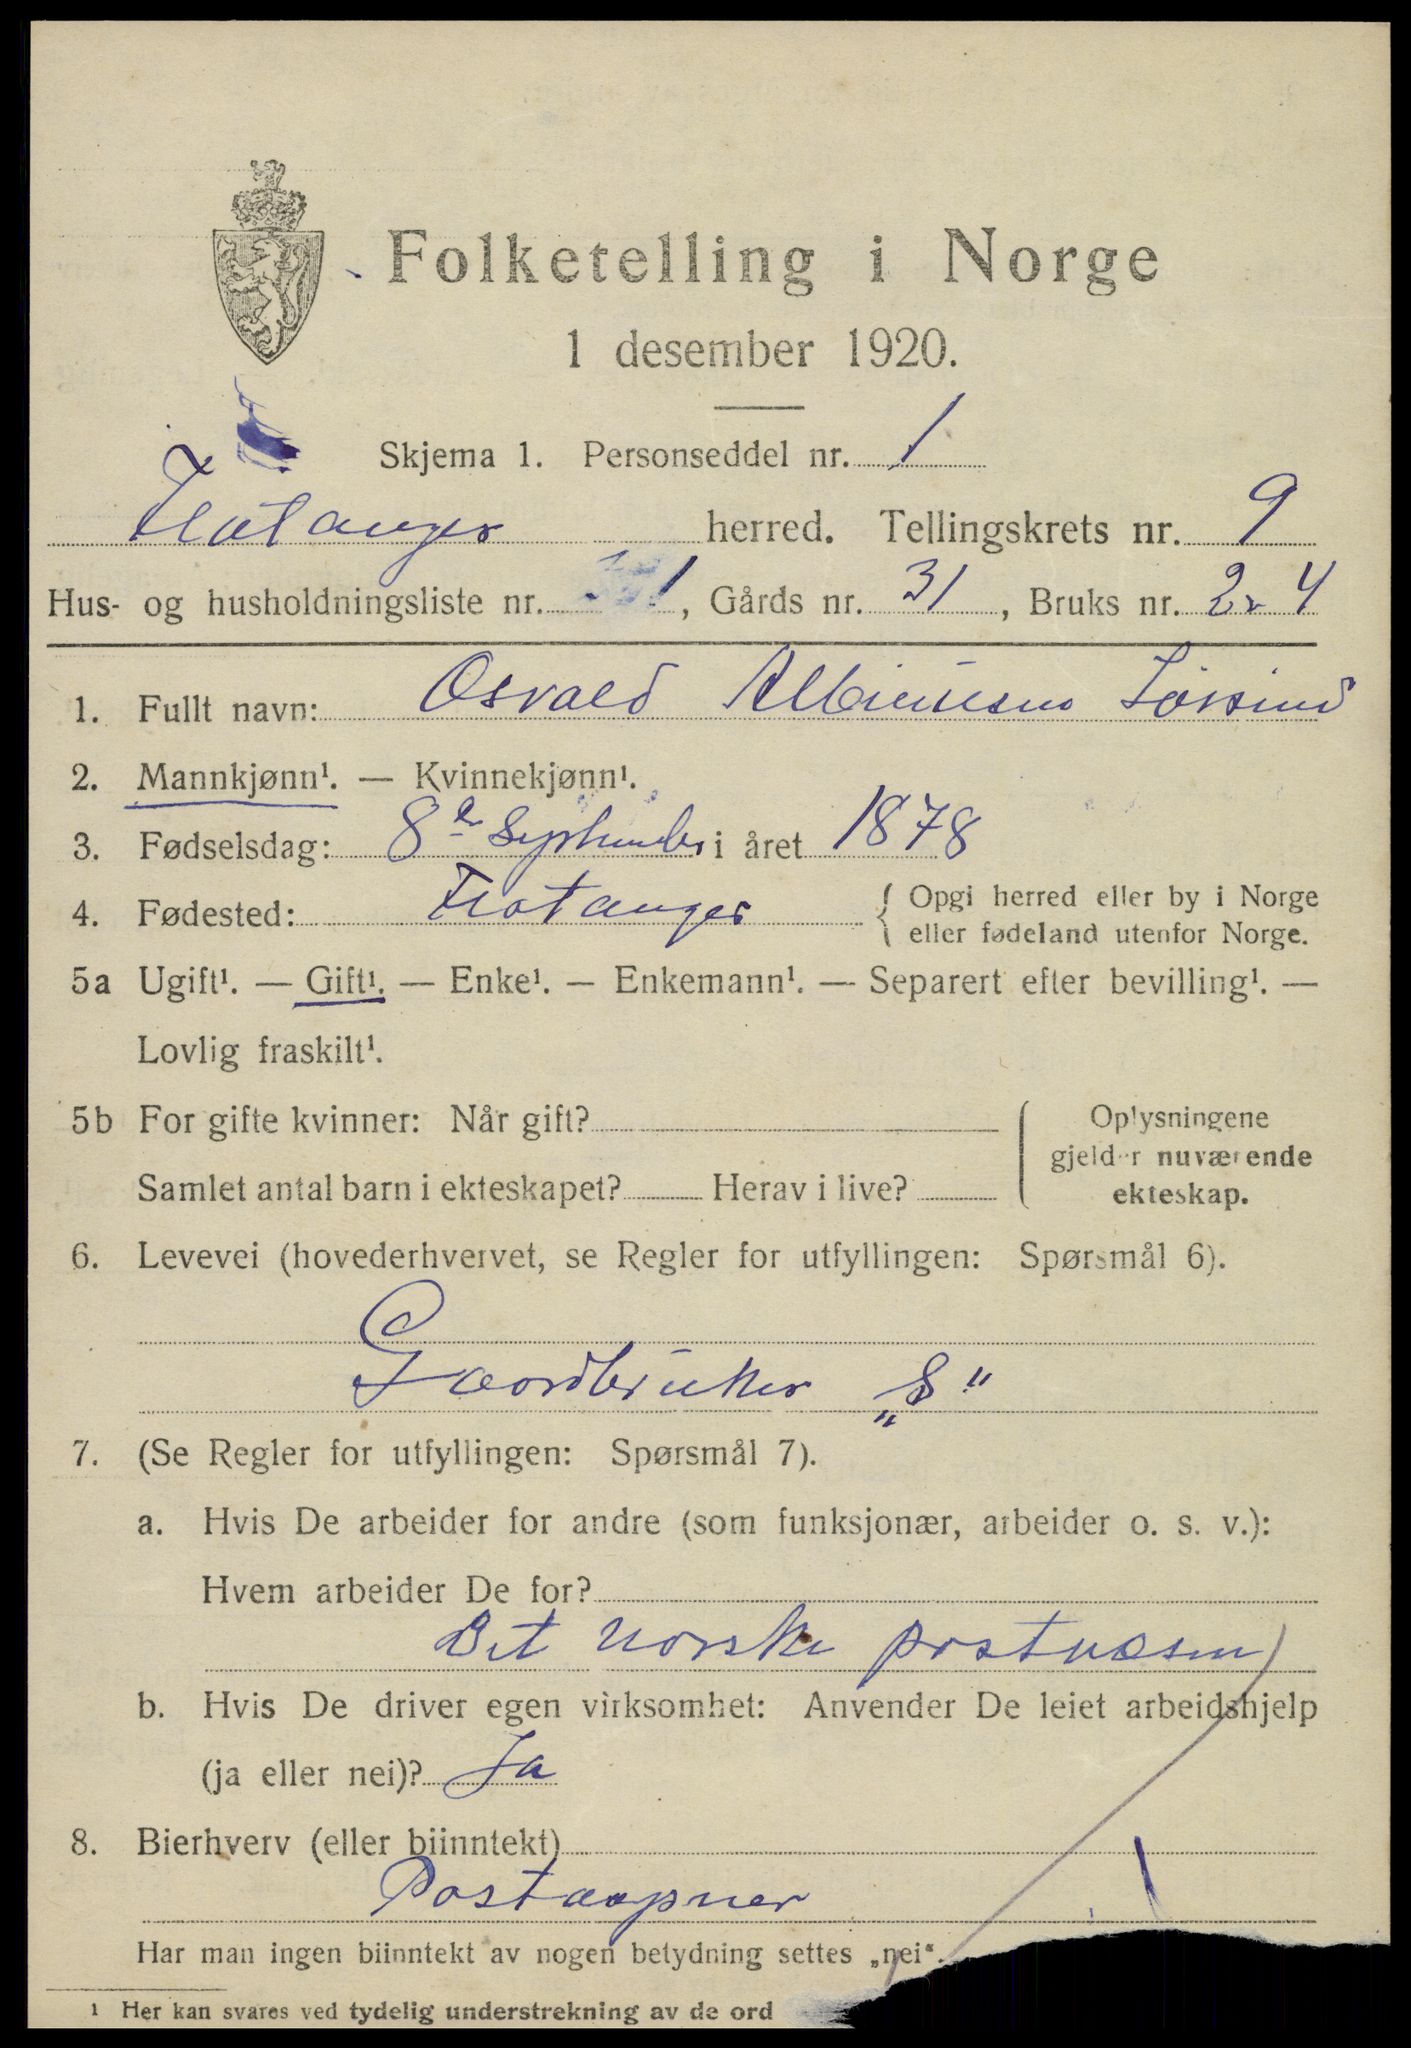 Folketelling i Norge
1 desember 1920.
Skjema 1. Personseddel nr. 1
Flatanger herred. Tellingskrets nr. 9
Hus- og husholdningsliste nr. 1, Gårds nr. 31, Bruks nr. 2 4
1. Fullt navn: Osvald
2. Mannkjønn¹. — Kvinnekjønn¹.
3. Fødselsdag: 8de September i året 1878
4. Fødested: Flatanger { Opgi herred eller by i Norge
eller fødeland utenfor Norge.
5a Ugift¹. — Gift¹. — Enke¹. — Enkemann¹. — Separert efter bevilling¹. —
Lovlig fraskilt¹.
5b For gifte kvinner: Når gift?
Samlet antal barn i ekteskapet? Herav i live?
Oplysningene
gjelder nuværende
ekteskap.
6. Levevei (hovederhvervet, se Regler for utfyllingen: Spørsmål 6).
Gaardbruker „S"
7. (Se Regler for utfyllingen: Spørsmål 7).
a. Hvis De arbeider for andre (som funksjonær, arbeider o. s. v.):
Hvem arbeider De for?
Det norske postvæsen
b. Hvis De driver egen virksomhet: Anvender De leiet arbeidshjelp
(ja eller nei)? Ja
8. Bierhverv (eller biinntekt)
Postaapner
Har man ingen biinntekt av nogen betydning settes „nei“.
1 Her kan svares ved tydelig understrekning av de ord